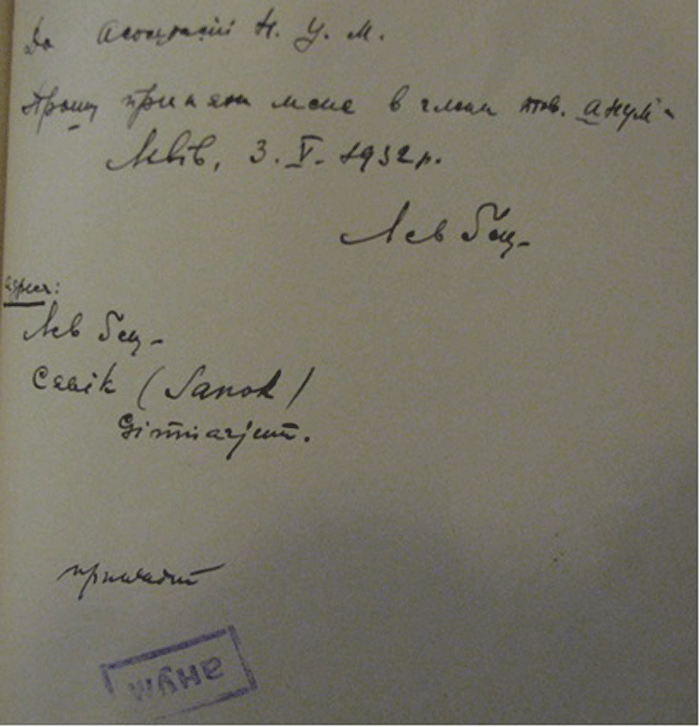 До Асоціяції Н. У. М.
Прошу приняти мене в члени тов. АНУМ-
Львів, 3. V. 1932 р.
Лев Ґец-
адреса:
Лев Ґец-
Сянік (Sanok)
Gimnazjum.
АНУМ